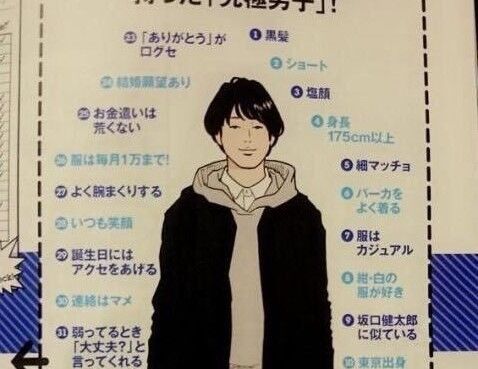 「究極男子」!
❶黒髪
❷ショート
❸塩顔
❹身長
175cm以上
❺細マッチョ
❻パーカを
よく着る
❼服は
カジュアル
❽紺・白の
服が好き
❾坂口健太郎
に似ている
❿東京出身
㉓「ありがとう」が
口グセ
㉔結婚願望あり
㉕お金遣いは
荒くない
㉖服は毎月1万まで!
㉗よく腕まくりする
㉘いつも笑顔
㉙誕生日には
アクセをあげる
㉚連絡はマメ
㉛弱ってるとき
「大丈夫?」と
言ってくれる